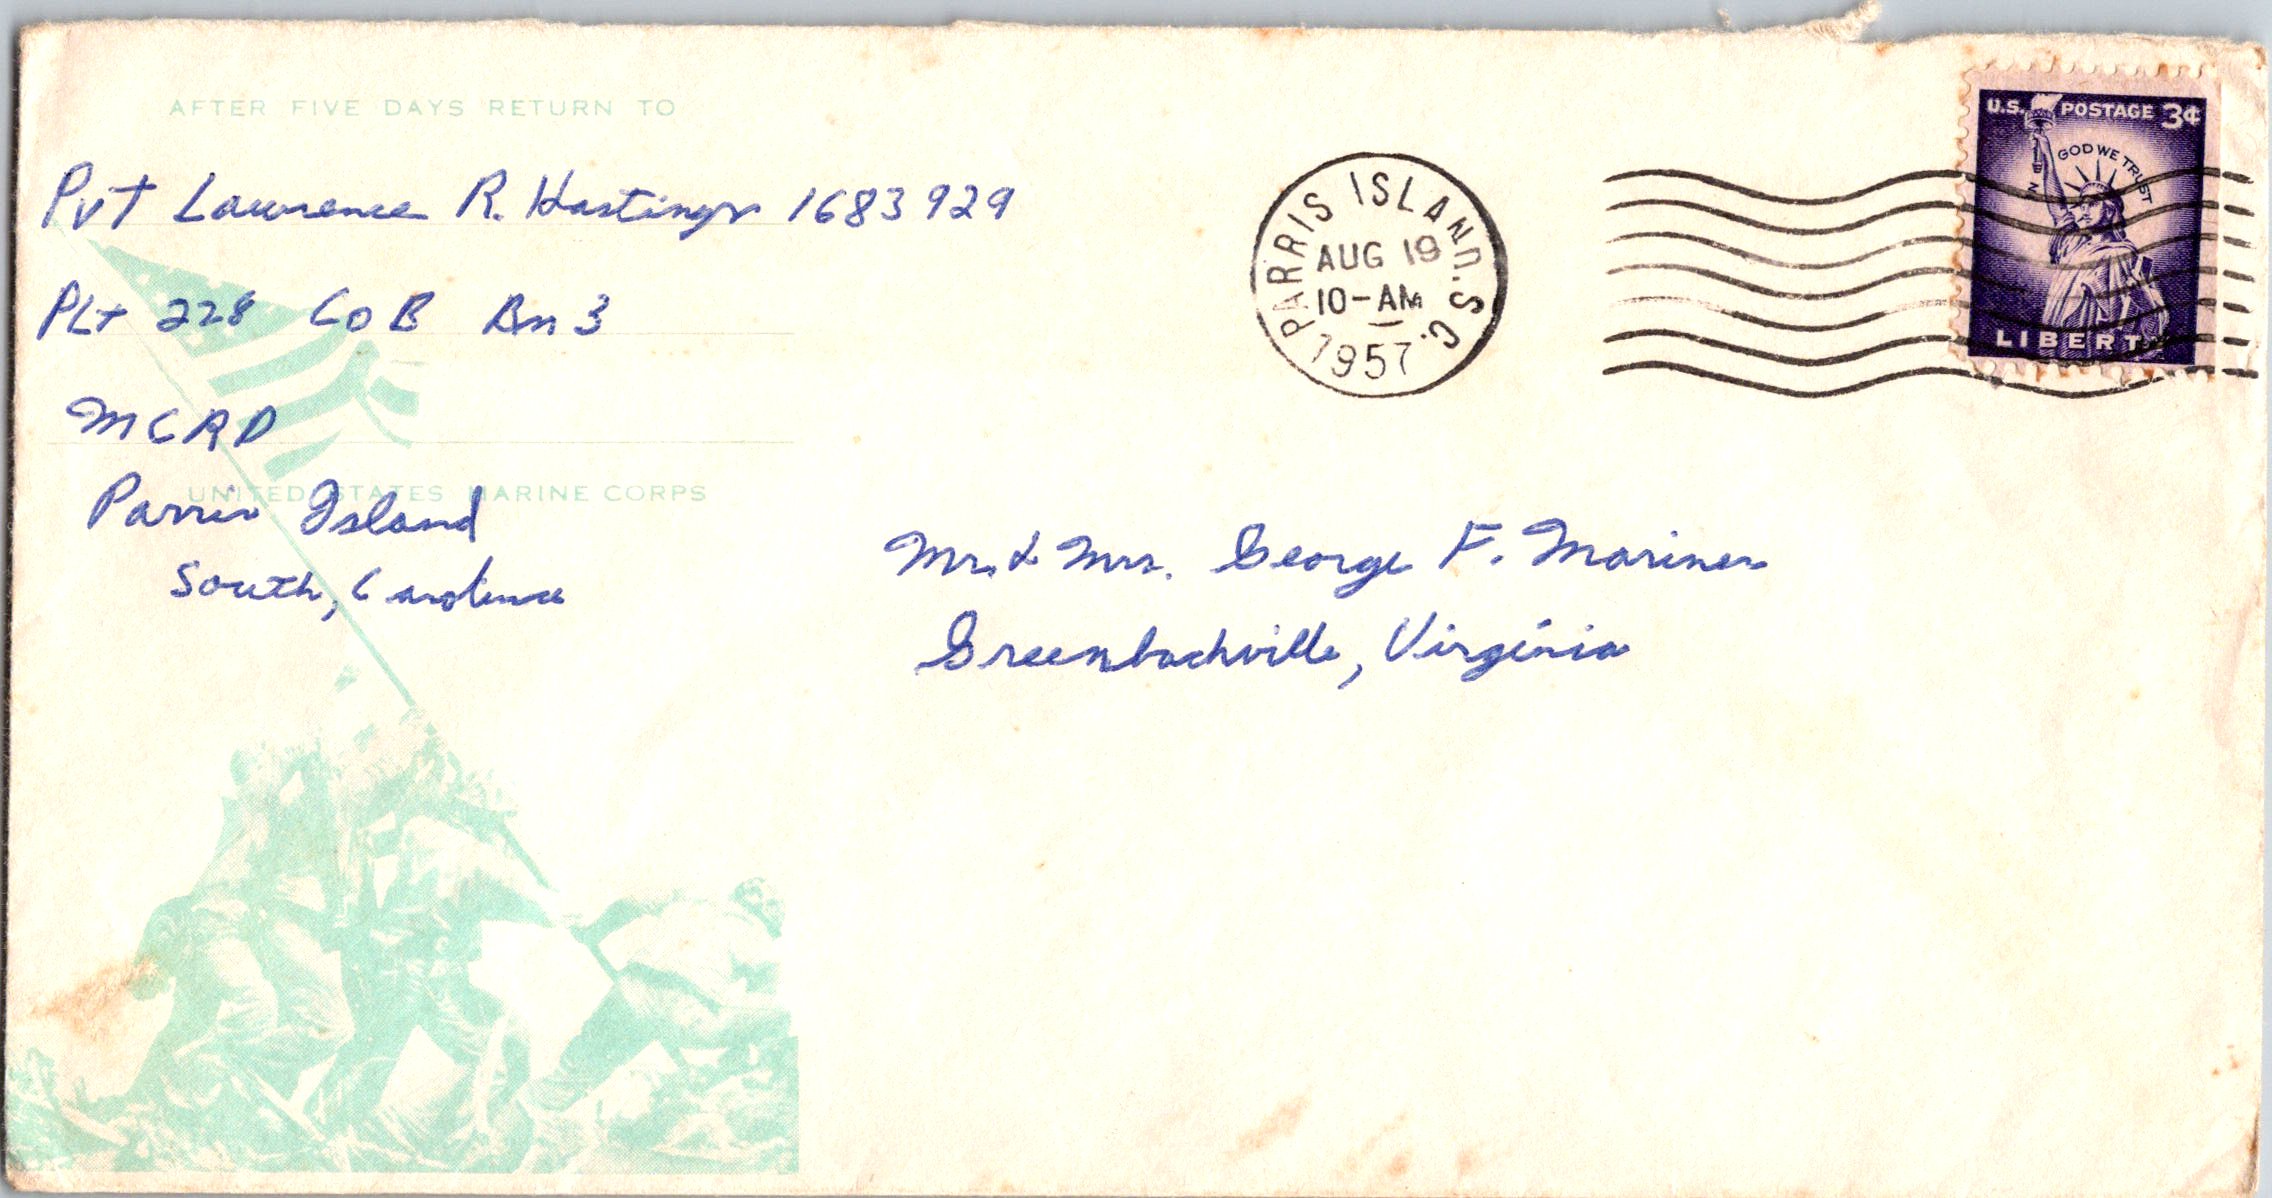 AFTER FIVE DAYS RETURN TO
Pvt Lawrence R. Hastings 1683929
Plt 228 Co B Bn 3
MCRD
UNITED STATES MARINE CORPS
Parris Island
South, Carolina
PARRIS ISLAND. S.C.
AUG 19
10-AM
1957
U.S. POSTAGE 3¢
IN GOD WE TRUST
LIBERTY
Mr. & Mrs. George F. Mariner
Greenbackville, Virginia